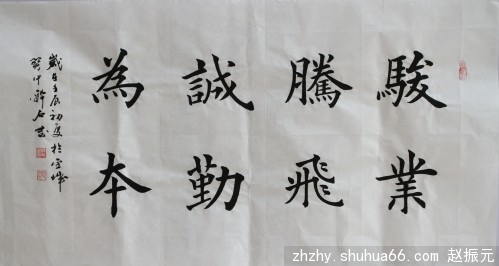 駿業
騰飛
誠勤
為本
歲在壬辰初夏於
zhzhy.shuhua66.com 赵振元